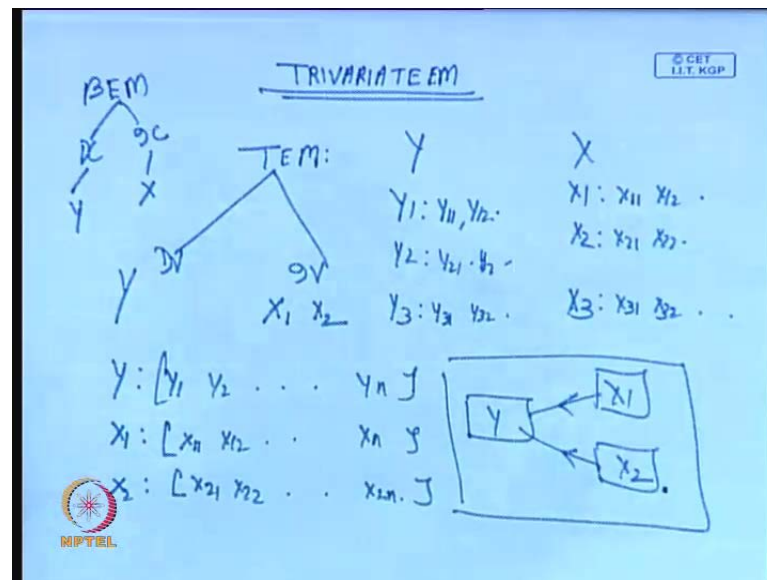 TRIVARIATE EM
© CET
I.I.T. KGP
BEM
DC IC
Y X
TEM:
DV IV
Y X1 X2
Y
Y1: Y11, Y12.
Y2: Y21 . Y2 -
Y3: Y31 Y32 .
X
X1: X11 X12 .
X2: X21 X22 .
X3: X31 X32 . .
Y: [Y1 Y2 . . . Yn]
X1: [X11 X12 . . Xn ]
X2: [X21 X22 . . X2n.]
Y X1
X2
NPTEL